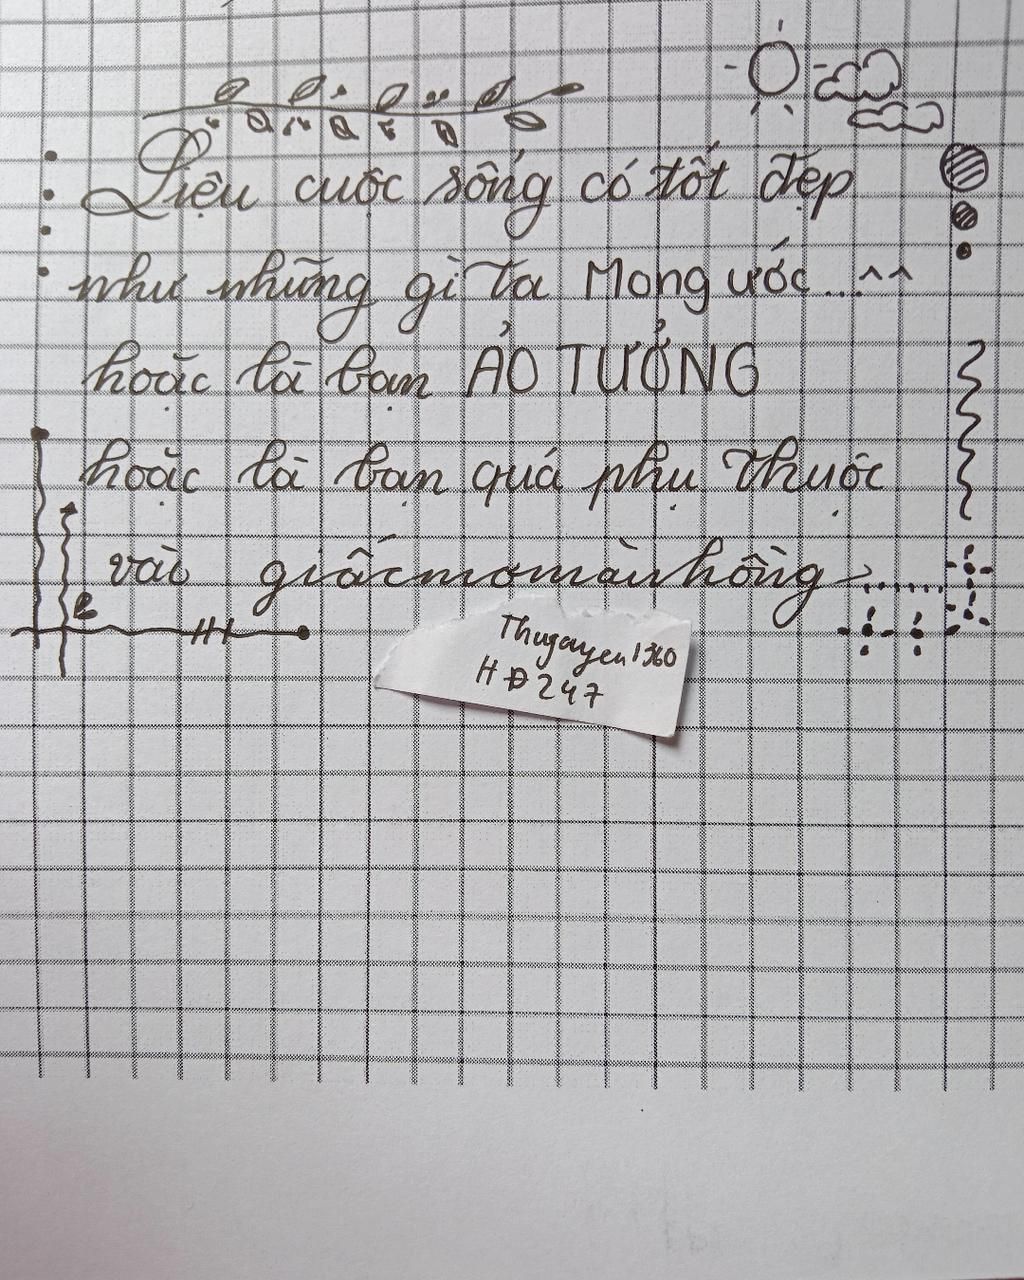 Liệu cuộc sống có tốt đẹp
như những gì ta Mong ước...^^
hoặc là bạn ẢO TƯỞNG
hoặc là bạn quá phụ thuộc
vào giấc mơ màu hồng
Thugayen1360
HĐ247